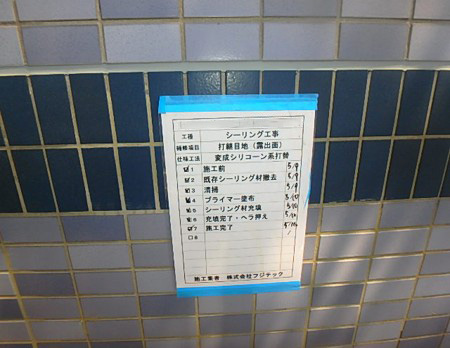 工種 シーリング工事
補修項目 打継目地（露出面）
仕様工法 変成シリコーン系打替
☑1 施工前 5/9
☑2 既存シーリング材撤去 5/9
☑3 清掃 5/9
☑4 プライマー塗布 5/10
☑5 シーリング材充填 5/10
☑6 充填完了・ヘラ押え 5/10
☑7 施工完了
☐8
施工業者 株式会社フジテック